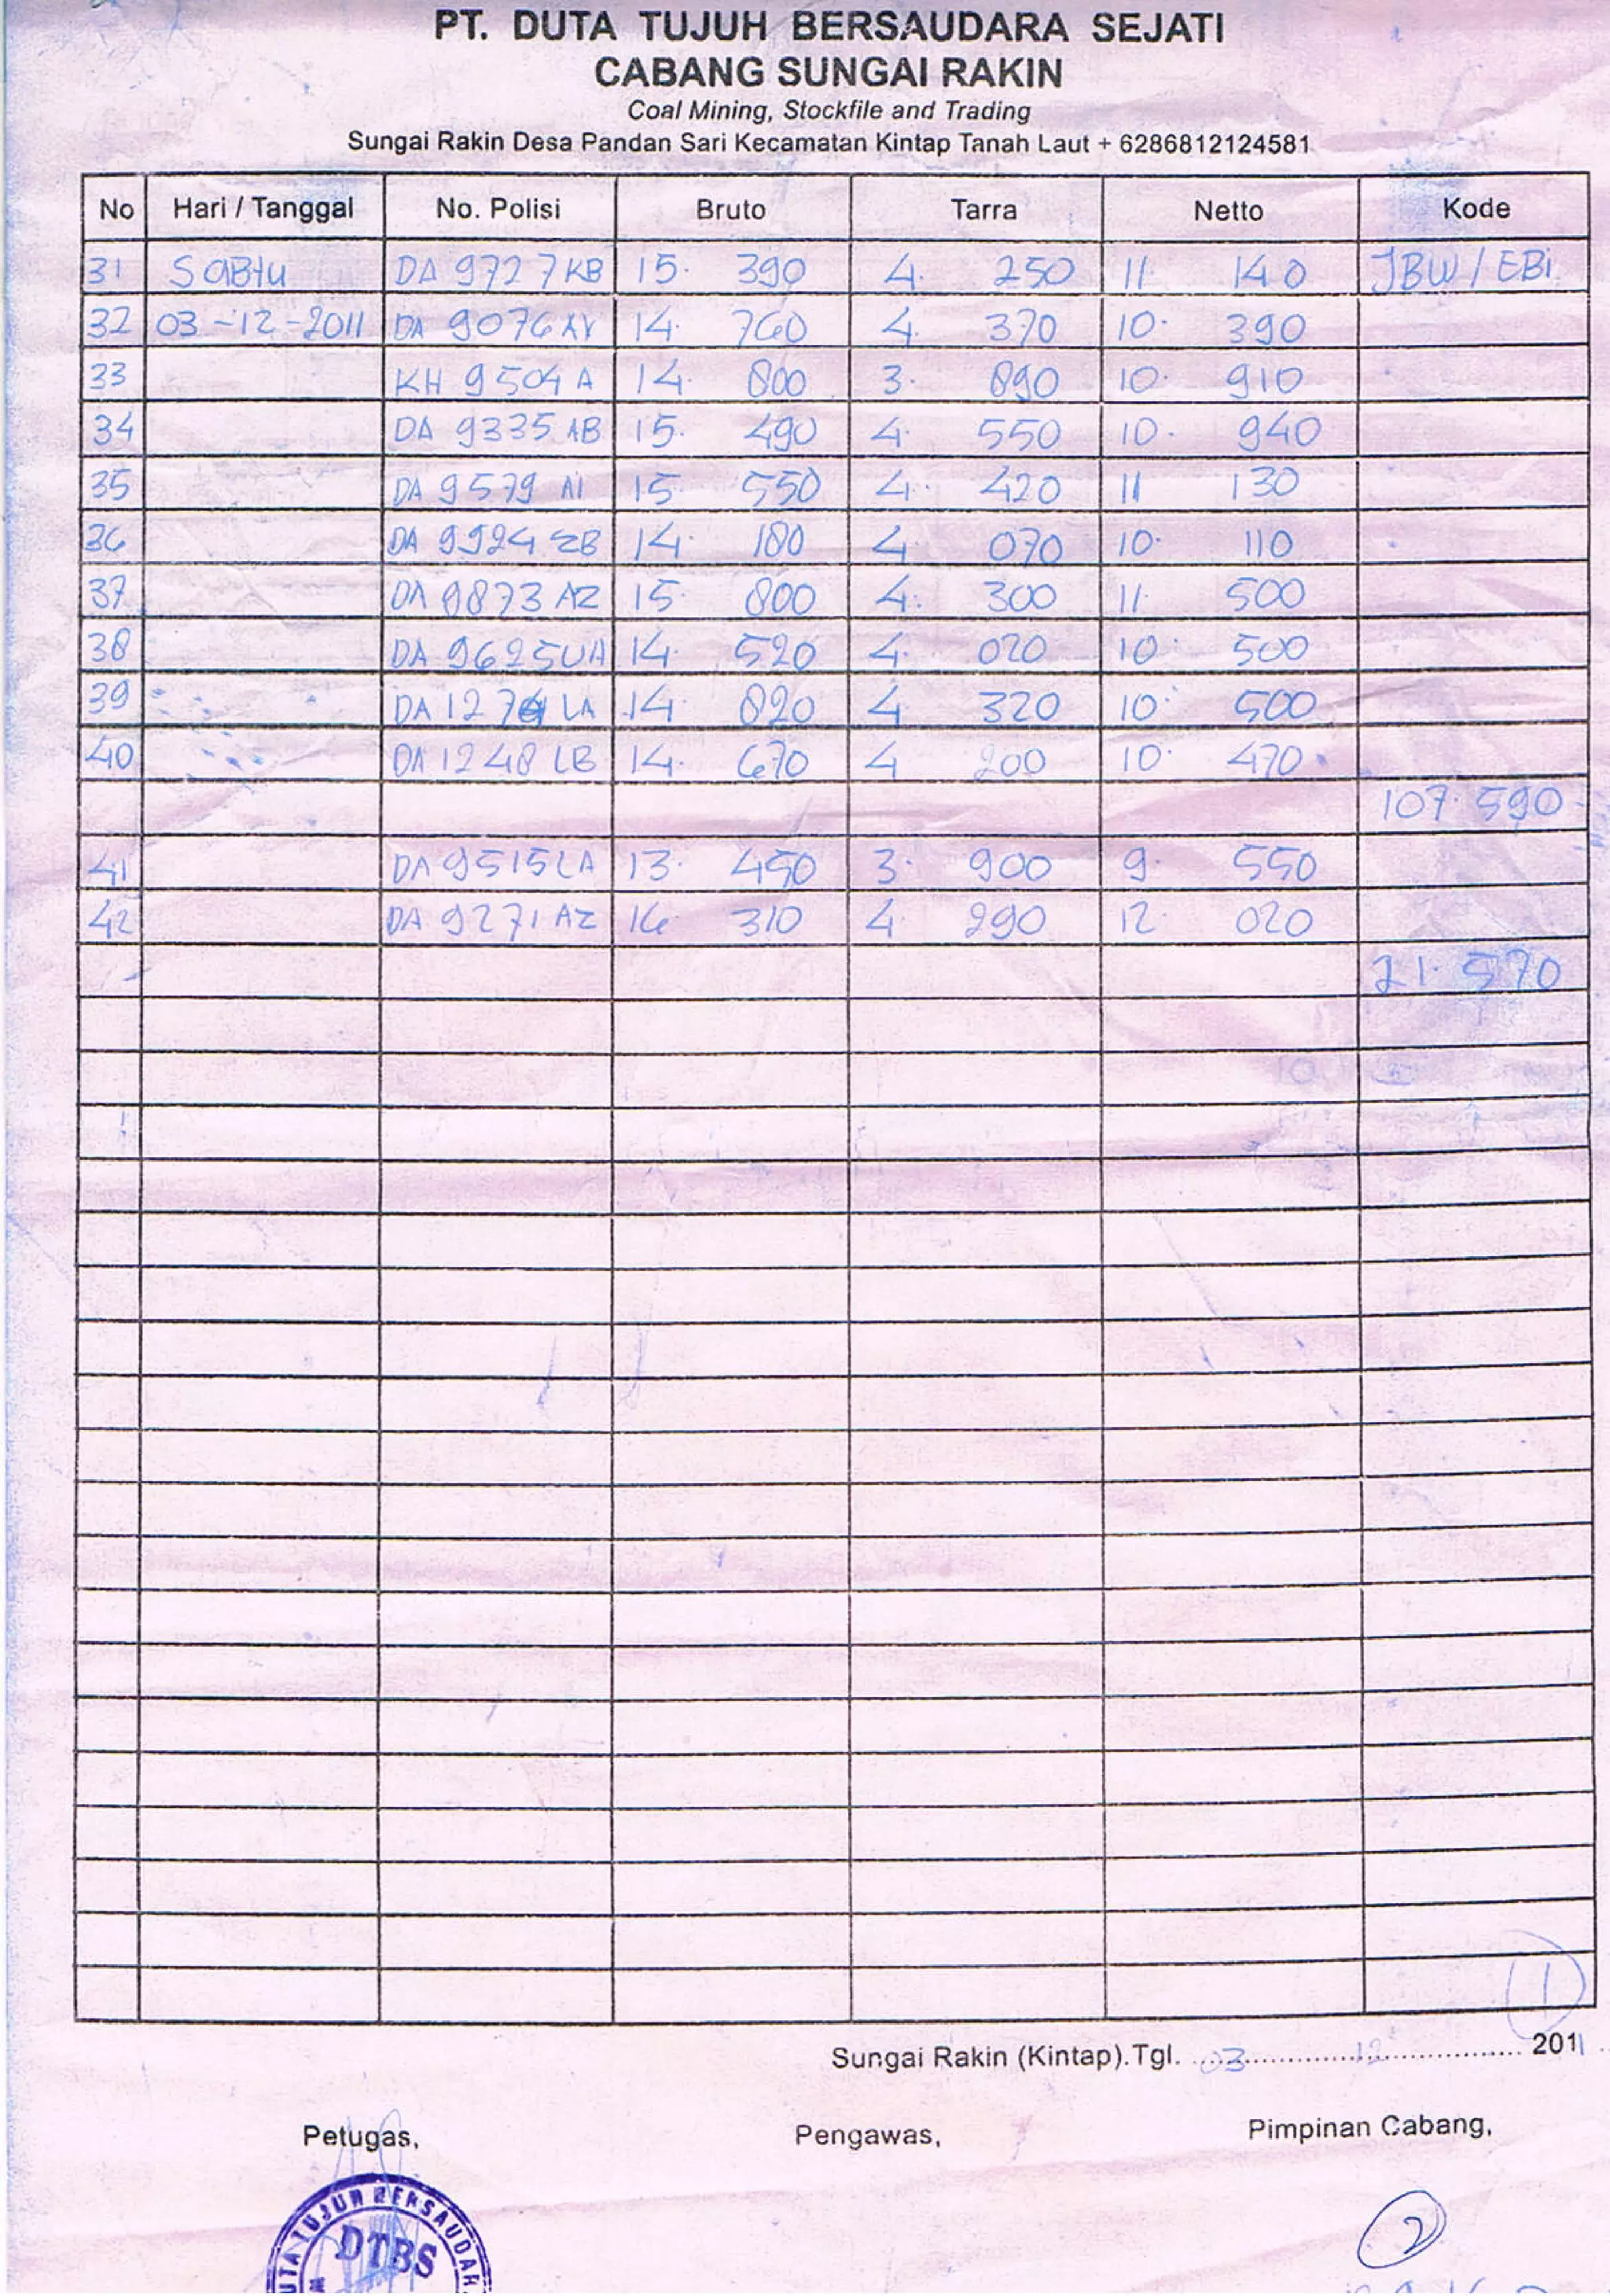 PT. DUTA TUJUH BERSAUDARA SEJATI
CABANG SUNGAI RAKIN
Coal Mining, Stockfile and Trading
Sungai Rakin Desa Pandan Sari Kecamatan Kintap Tanah Laut + 6286812124581
No Hari / Tanggal No. Polisi Bruto Tarra Netto Kode
31 Sabtu DA 9727 KB 15. 390 4. 250 11. 140 JBW / EBi
32 03-12-2011 DA 9076 14. 760 4. 370 10. 390
33 KH 9504 A 14. 800 3. 890 10. 910
34 DA 9335 AB 15. 490 4. 550 10. 940
35 DA 9579 AI 15. 550 4. 420 11 130
36 DA 9924 ZB 14. 180 4. 070 10. 110
37 DA 9873 AZ 15. 800 4. 300 11. 500
38 DA 9625 UA 14. 520 4. 020 10. 500
39 DA LA 14. 820 4 320 10. 500
40 DA 1248 LB 14. 670 4 200 10. 470
107. 590
41 DA 9515 LA 13. 450 3. 900 9. 550
42 DA 9271 AZ 16. 310 4. 290 12 020
21. 570
1
Sungai Rakin (Kintap).Tgl. 03 12 2011
Petugas, Pengawas, Pimpinan Cabang,
UTA TUJUH BERSAUDAR
DTBS
2